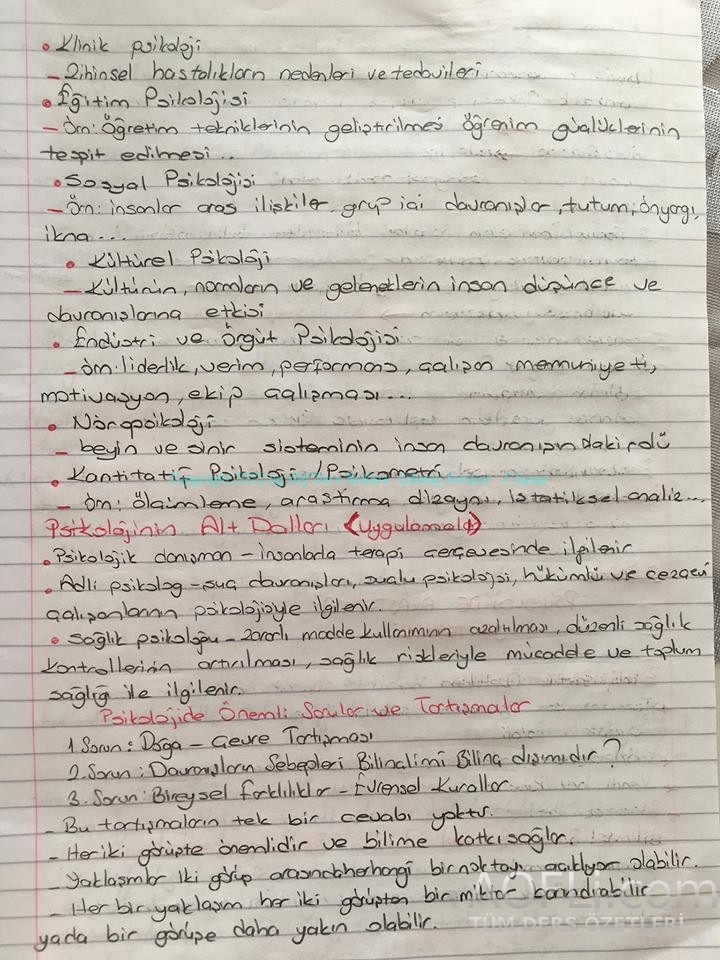 • Klinik psikoloji
- Zihinsel hastalıkların nedenleri ve tedavileri
• Eğitim Psikolojisi
- Örn: Öğretim tekniklerinin geliştirilmesi öğrenim güçlüklerinin
tespit edilmesi..
• Sosyal Psikolojisi
- Örn: insanlar aras ilişkiler, grup içi davranışlar, tutum, önyargı,
ikna...
• Kültürel Psikoloji
- Kültürün, normların ve geleneklerin insan düşünce ve
davranışlarına etkisi
• Endüstri ve Örgüt Psikolojisi
- örn. liderlik, verim, performans, çalışan memuniyeti,
motivasyon, ekip çalışması...
• Nöropsikoloji
- beyin ve sinir sisteminin insan davranışındaki rolü
• Kantitatif Psikoloji / Psikometri
- örn: ölçimleme, araştırma dizaynı, istatiksel analiz...
Psikolojinin Alt Dalları (Uygulamalı)
• Psikolojik danışman - insanlarla terapi çerçevesinde ilgilenir
• Adli psikolog - suç davranışları, suçlu psikolojisi, hükümlü ve cezaevi
çalışanlarının psikolojisiyle ilgilenir.
• Sağlık psikoloğu - zararlı madde kullanımının azaltılması, düzenli sağlık
kontrollerinin artırılması, sağlık riskleriyle mücadele ve toplum
sağlığı ile ilgilenir.
Psikolojide Önemli Sorular ve Tartışmalar
1. Sorun: Doğa - Çevre Tartışması
2. Sorun: Davranışların Sebepleri Bilinçlimi Bilinç dışımıdır?
3. Sorun: Bireysel farklılıklar - Evrensel Kurallar
- Bu tartışmaların tek bir cevabı yoktur.
- Her iki görüpte önemlidir ve bilime katkı sağlar.
- Yaklaşımlar iki görüp arasında herhangi bir noktayı açıklıyor olabilir.
- Her bir yaklaşım her iki görüpten bir miktar barındırabilir
yada bir görüşe daha yakın olabilir.
TÜM DERS ÖZETLERİ